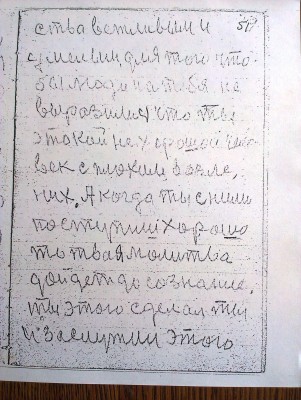 57
ства вежливым и
умелым для того что
бы люди на тебя не
выразились что ты
этокой не хороший чело
век с плохим возле
них. А когда ты с ними
поступиш хорошо
то твая молитва
дойдет до сознание.
ты этого сделал ты
и заслужил этого